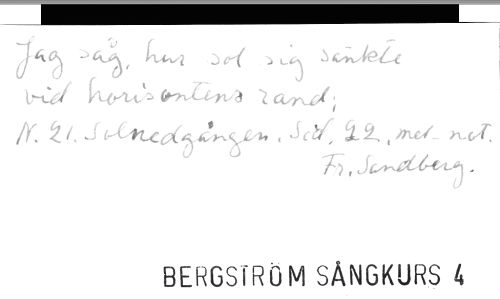 Jag såg, hur sol sig sänkte
vid horisontens rand;
N. 21. Solnedgången. Sid. 22, mel. not.
Fr. Sandberg.
BERGSTRÖM SÅNGKURS 4